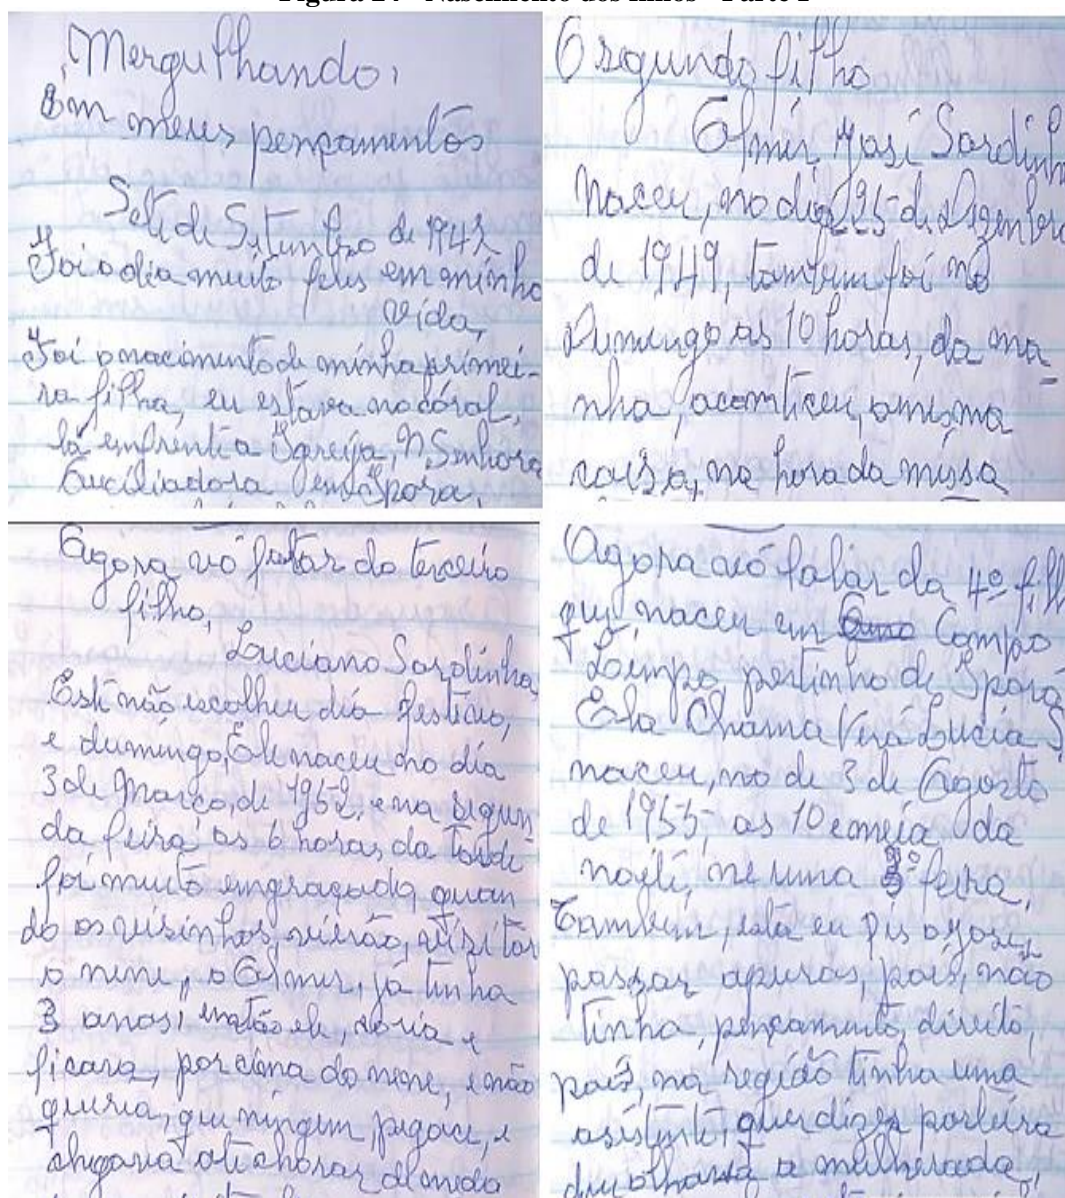 Mergulhando,
Em meus pençamentos
Sete de Setembro de 194
Foi o dia muito feus em minha
vida,
Foi o nacimento de minha primei-
ra filha, eu estava no córal,
lá emfrente a Igreija, N Senhora
Auciliadora em Iporá,
O segundo filho
Almir José Sardinh
Naceu, no dia 25 de Dizembro
de 1949, tambem foi no
Dumingo as 10 horas, da ma
nha, acomticeu, a mesma
coisa, na hora da missa
Agora vó falar do terceiro
filho,
Luciano Sardinha
Este não iscolheu dia festivo,
e dumingo, Ele naceu no dia
3 de Março, de 1952, e na segun
da feira as 6 horas da tarde
foi muito emgraçado, quan
do os visinhos, vierão, visitar
o nene, o Almir, já tinha
3 anos, emtão ele, soria e
ficava, por cima do nene, e não
queria, que ningem pegace, e
chegava ate chorar de medo
Agora vó falar da 4º filh
que naceu em Campo
Limpo pertinho de Iporá
Ela Chama Vera Lucia S
naceu, no de 3 de Agosto
de 1955, as 10 e meia da
noite, ne uma 3º feira,
Também, esta eu fis o José
passar apuros, pois, não
tinha, pençamento, direito,
pois, na região tinha uma
asistente, quer dizer parteira
que olhava a mulherada,